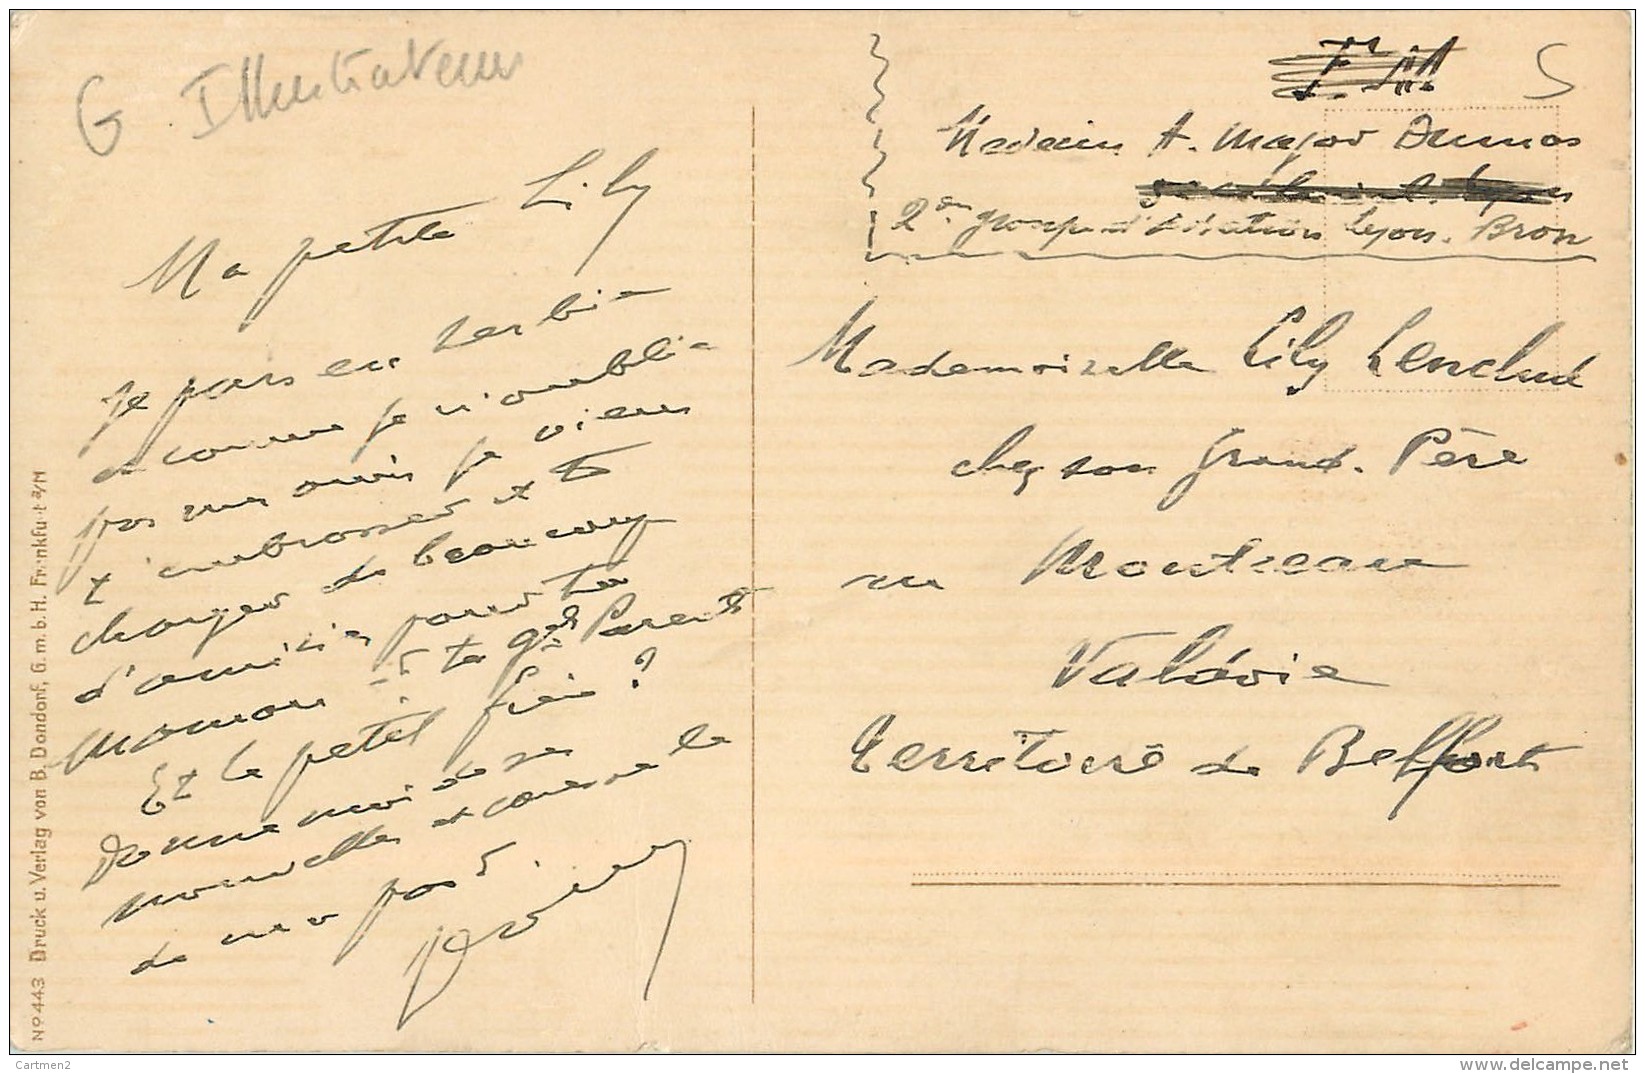 G Illustrateur
Ma petite Lily
Je pars en Serbie
et comme je n'oublie
pas mes amis je viens
t'embrasser et te
charger de beaucoup
d'amitiés pour ta
Maman et tes gds Parents
Et le petit frère ?
Donne moi de ses
nouvelles et
de ma part.
F. M.
5
Médecin A. Major Dumas
2e groupe d'Aviation Lyon. Bron
Mademoiselle Lily Lenclud
chez son Grand. Père
au Monteau
Valdoie
Territoire de Belfort
Nº 443 Druck u. Verlag von B. Dondorf, G. m. b. H. Frankfurt a/M
Cartmen2
www.delcampe.net